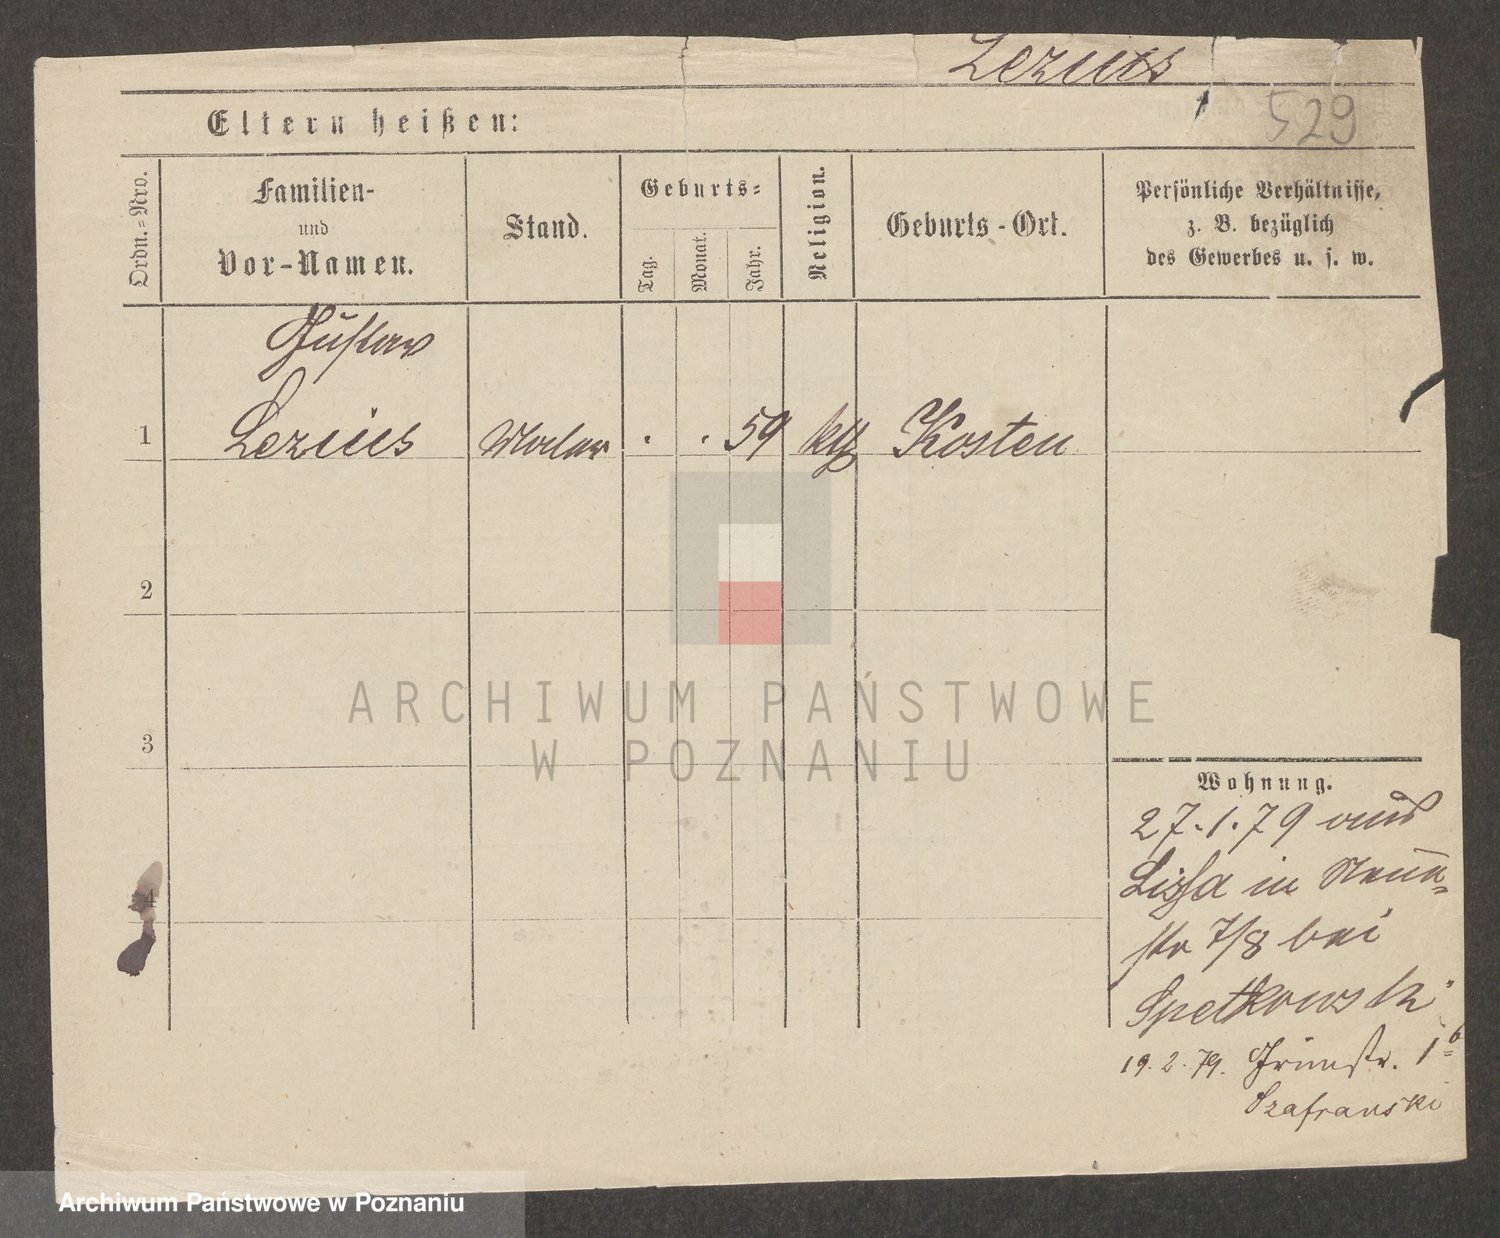 Lezius
529
Eltern heißen:
Ordn.=Nro.
Familien-
und
Vor-Namen.
Stand.
Geburts=
Tag.
Monat.
Jahr.
Religion.
Geburts-Ort.
Persönliche Verhältnisse,
z. B. bezüglich
des Gewerbes u. s. w.
Gustav
1 Lezius Maler . . 59 ktf Kosten
2
3
4
Wohnung.
27.1.79 aus
Lissa in Neue-
str 7/8 bei
Spetkowski
19.2.79. Grünstr. 1b
Szafranski
ARCHIWUM PAŃSTWOWE
W POZNANIU
Archiwum Państwowe w Poznaniu